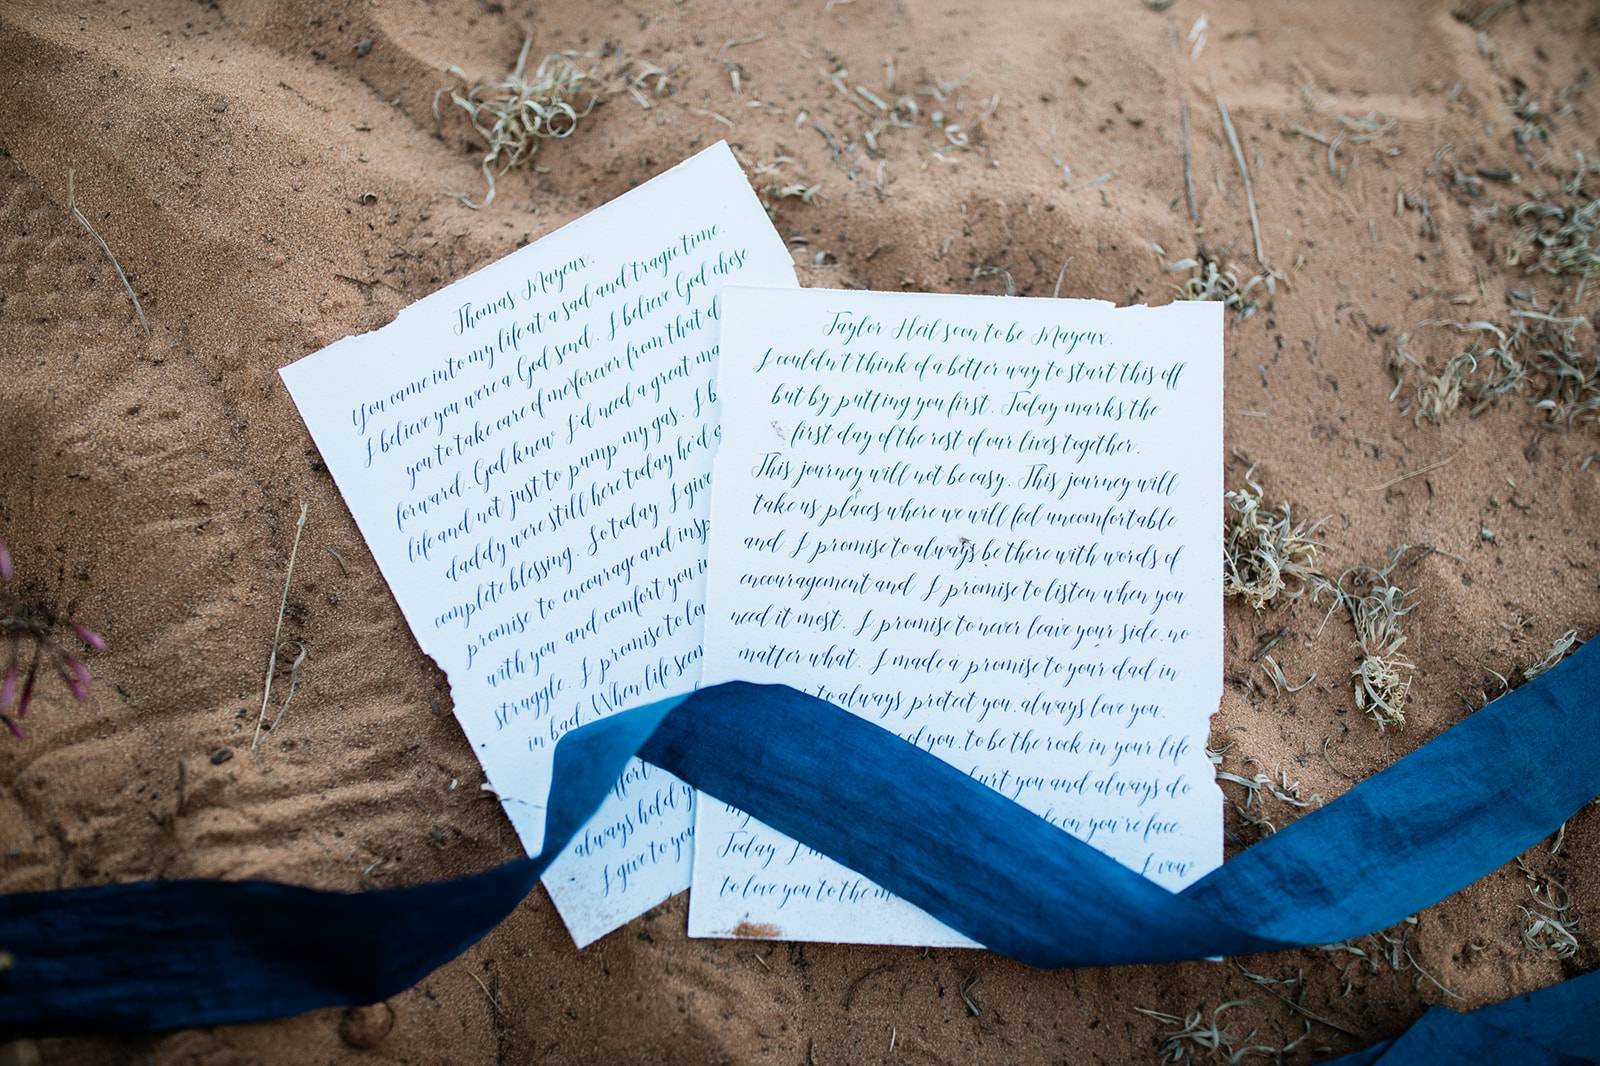 Thomas Mayeux.
You came into my life at a sad and tragic time.
I believe you were a God send. I believe God chose
you to take care of me forever from that
forward. God knew I'd need a great
life and not just to pump my gas. I
daddy were still here today he'd
complete blessing. So today I give
promise to encourage and
with you and comfort you in
struggle. I promise to
in bad. When life
always hold
I give to you
Taylor Heil soon to be Mayeux.
I couldn't think of a better way to start this off
but by putting you first. Today marks the
first day of the rest of our lives together.
This journey will not be easy. This journey will
take us places where we will feel uncomfortable
and I promise to always be there with words of
encouragement and I promise to listen when you
need it most. I promise to never leave your side, no
matter what. I made a promise to your dad in
to always protect you, always love you,
of you, to be the rock in your life
hurt you and always do
on you're face.
Today I vow
to love you to the